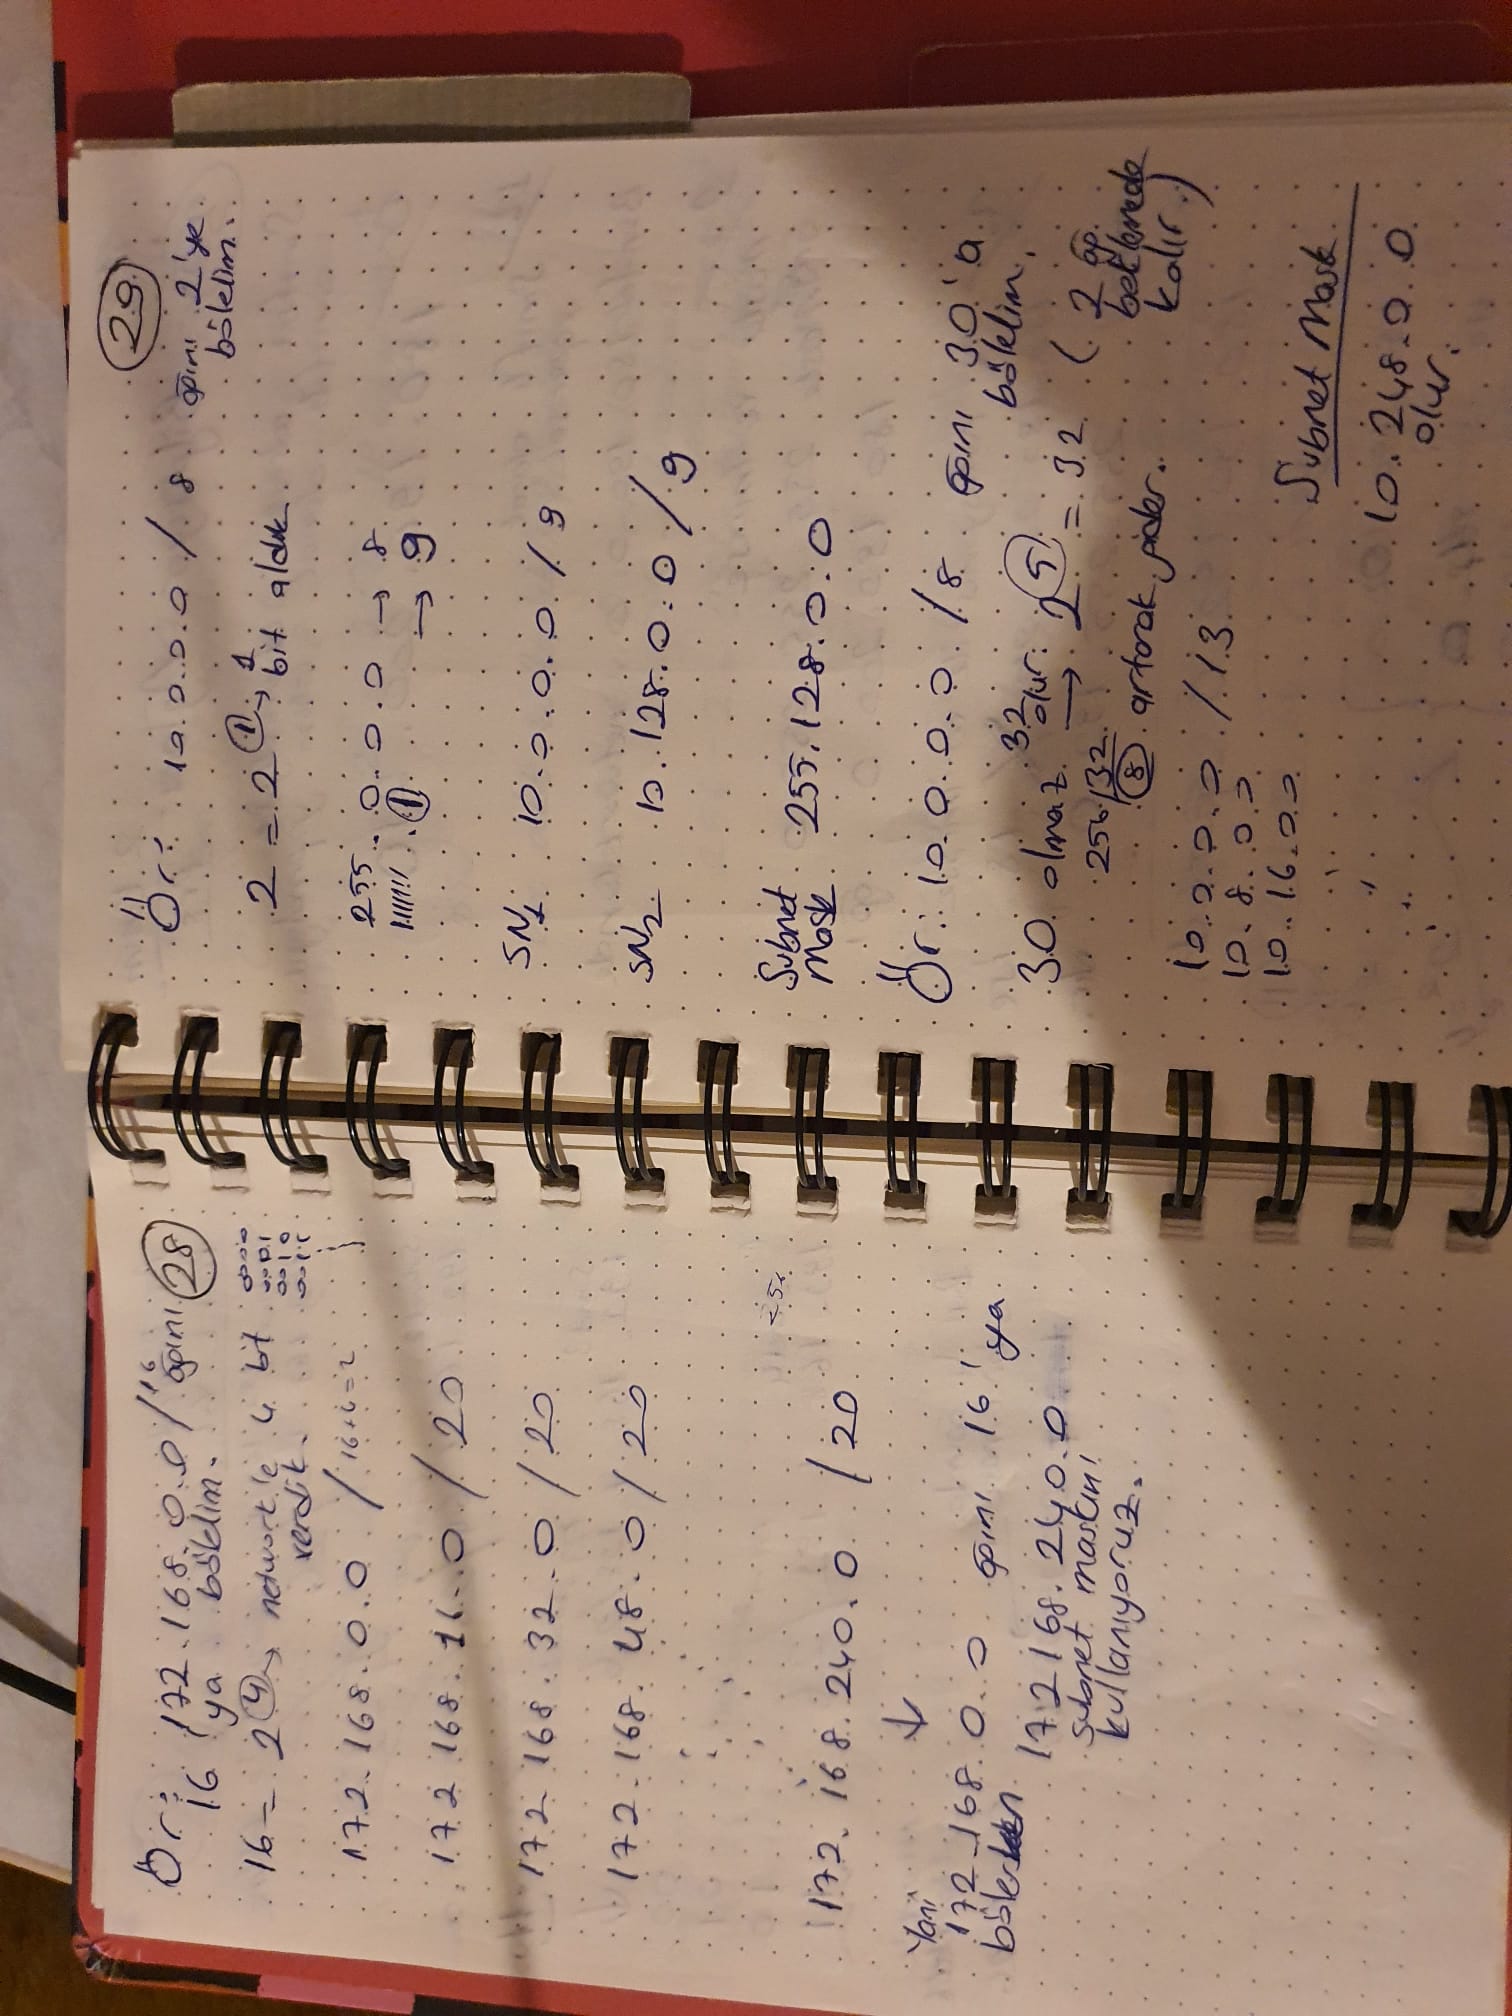 28
Ör: 172.168.0.0/16 ağını
16'ya bölelim.
16 = 2 4 → network'e 4 bit
verdik.
0000
0001
0010
0011
172.168.0.0 /
172 168.16.0 / 20
172 168.32.0 / 20
172.168.48.0 / 20
256
172.168.240.0 / 20
↓
Yani
172.168.0.0 ağını 16'ya
bölerken
172 168.240.0
subnet maskını
kullanıyoruz.
29
Ör: 10.0.0.0 / 8 ağını 2'ye
bölelim.
2 = 2 1 → 1
bit aldık
255.0.0.0 → 8
11111111.1 → 9
SN1 10.0.0.0 / 9
SN2 10.128.0.0 / 9
Subnet
Mask 255.128.0.0
Ör: 10.0.0.0 /8 ağını 30'a
bölelim.
30 olmaz 32 olur. → 2 5 = 32 ( 2 ağ
beklemede
kalır.)
256/32
8 artarak gider.
10.0.0.0 /13
10.8.0.0
10.16.0.0
Subnet Mask
10.248.0.0
olur.